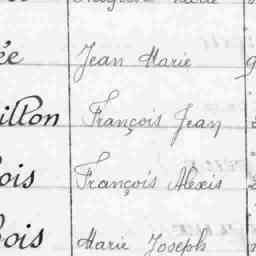 ée Jean Marie
illon François Jean
ois François Alexis
bois Marie Joseph